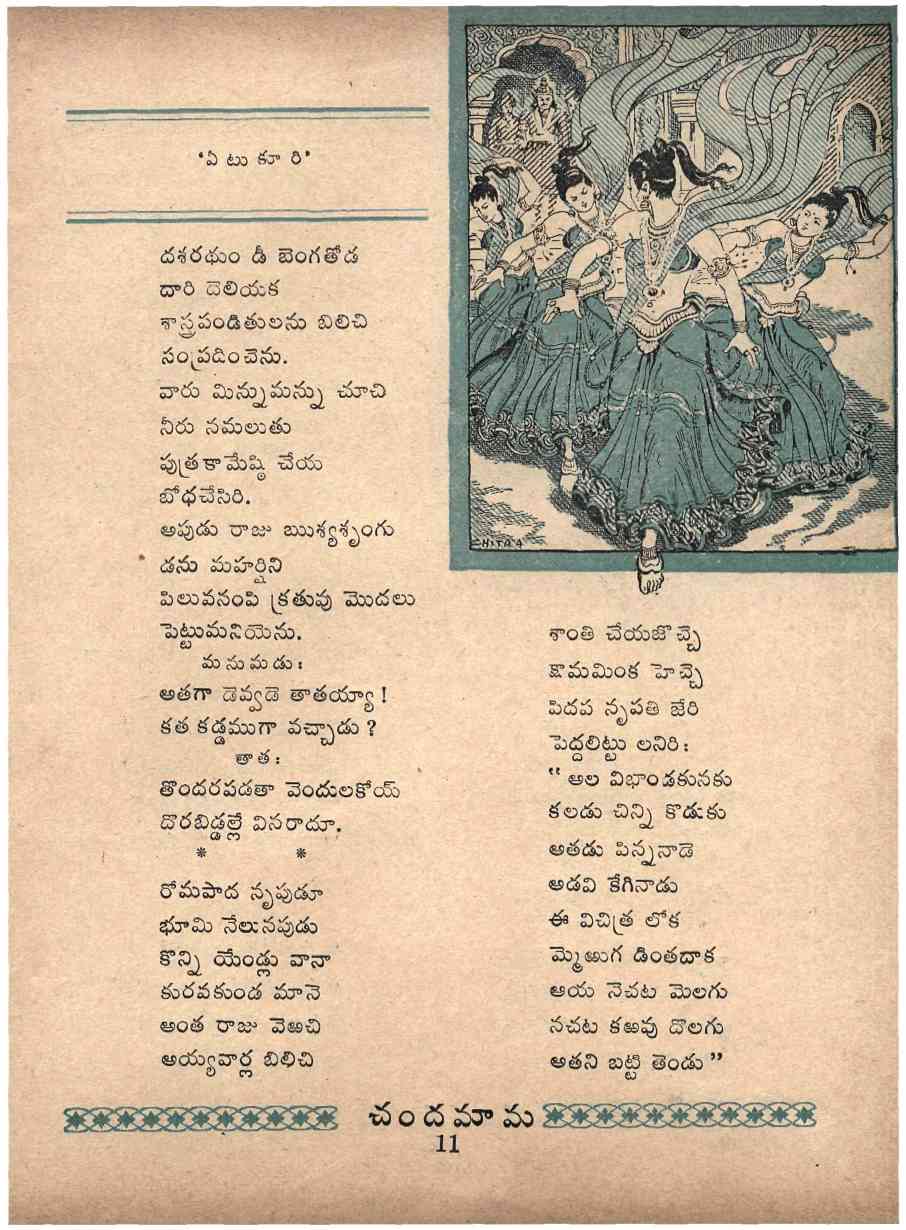 'ఏ టు కూ రి'
దశరథుం డీ బెంగతోడ
దారి దెలియక
శాస్త్రపండితులను బిలిచి
సంప్రదించెను.
వారు మిన్నుమన్ను చూచి
నీరు నమలుతు
పుత్రకామేష్ఠి చేయ
బోధచేసిరి.
అపుడు రాజు ఋశ్యశృంగు
డను మహర్షిని
పిలువనంపి క్రతువు మొదలు
పెట్టుమనియెను.
మనుమడు :
అతగా డెవ్వడె తాతయ్యా !
కత కడ్డముగా వచ్చాడు ?
తాత :
తొందరపడతా వెందులకోయ్
దొరబిడ్డల్లే వినరాదూ.
* *
రోమపాద నృపుడూ
భూమి నేలునపుడు
కొన్ని యేండ్లు వానా
కురవకుండ మానె
అంత రాజు వెఱచి
అయ్యవార్ల బిలిచి
HITRA
శాంతి చేయజొచ్చె
క్షామమింక హెచ్చె
పిదప నృపతి జేరి
పెద్దలిట్టు లనిరి :
" అల విభాండకునకు
కలడు చిన్ని కొడుకు
అతడు పిన్ననాడె
అడవి కేగినాడు
ఈ విచిత్ర లోక
మ్మెఱుగ డింతదాక
ఆయ నెచట మెలగు
నచట కఱవు దొలగు
అతని బట్టి తెండు "
చందమామ
11